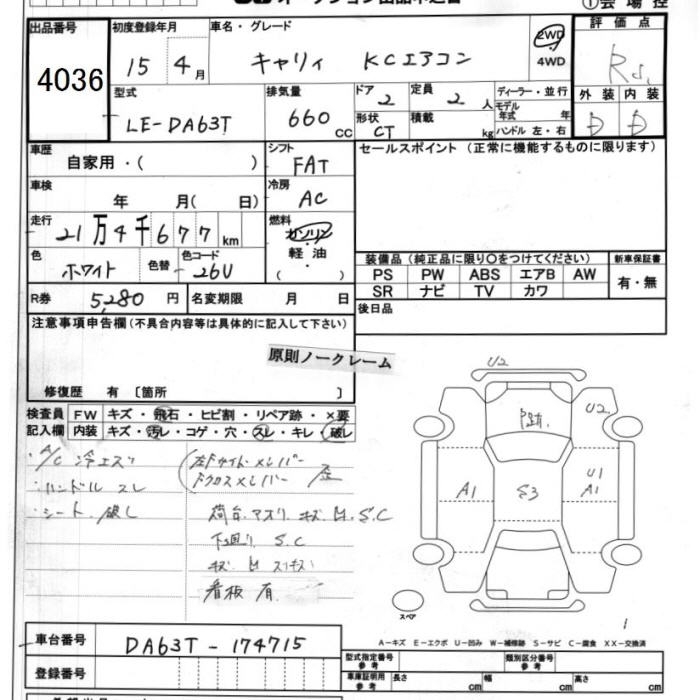 出品番号
4036
初度登録年月
15年 4月
車名・グレード
キャリィ KCエアコン
2WD
4WD
評価点
R
外装 内装
D D
型式
LE-DA63T
排気量
660 CC
ドア 2
定員 2 人
形状 CT
積載 kg
ディーラー・並行
モデル年式 年
ハンドル 左・右
車歴
自家用・( )
シフト
FAT
セールスポイント (正常に機能するものに限ります)
車検
年 月( 日)
冷房
AC
走行
21万4千677km
燃料
ガソリン
軽油
・
( )
色
ホワイト
色替
色コード
26U
装備品(純正品に限り○をつけてください)
新車保証書
PS PW ABS エアB AW
SR ナビ TV カワ
有・無
R券 5,280 円
名変期限 月 日
後日品
注意事項申告欄(不具合内容等は具体的に記入して下さい)
原則ノークレーム
修復歴 有〔箇所 〕
検査員記入欄
FW キズ・飛石・ヒビ割・リペア跡・×要
内装 キズ・汚レ・コゲ・穴・スレ・キレ・破レ
・A/C 冷エズ
・ハンドル スレ
・シート 破し
左Fサイドメンバー
Fクロスメンバー 歪
荷台 アオリ キズ H S.C
下廻り S.C
キズ H
看板 有
U2
P跡
U2
A1
S3
U1
A1
スペア
A-キズ E-エクボ U-凹み W-補修跡 S-サビ C-腐食 XX-交換済
車台番号
DA63T-174715
登録番号
型式指定番号 参考
類別区分番号 参考
車庫証明用 参考
長さ cm
幅 cm
高さ cm